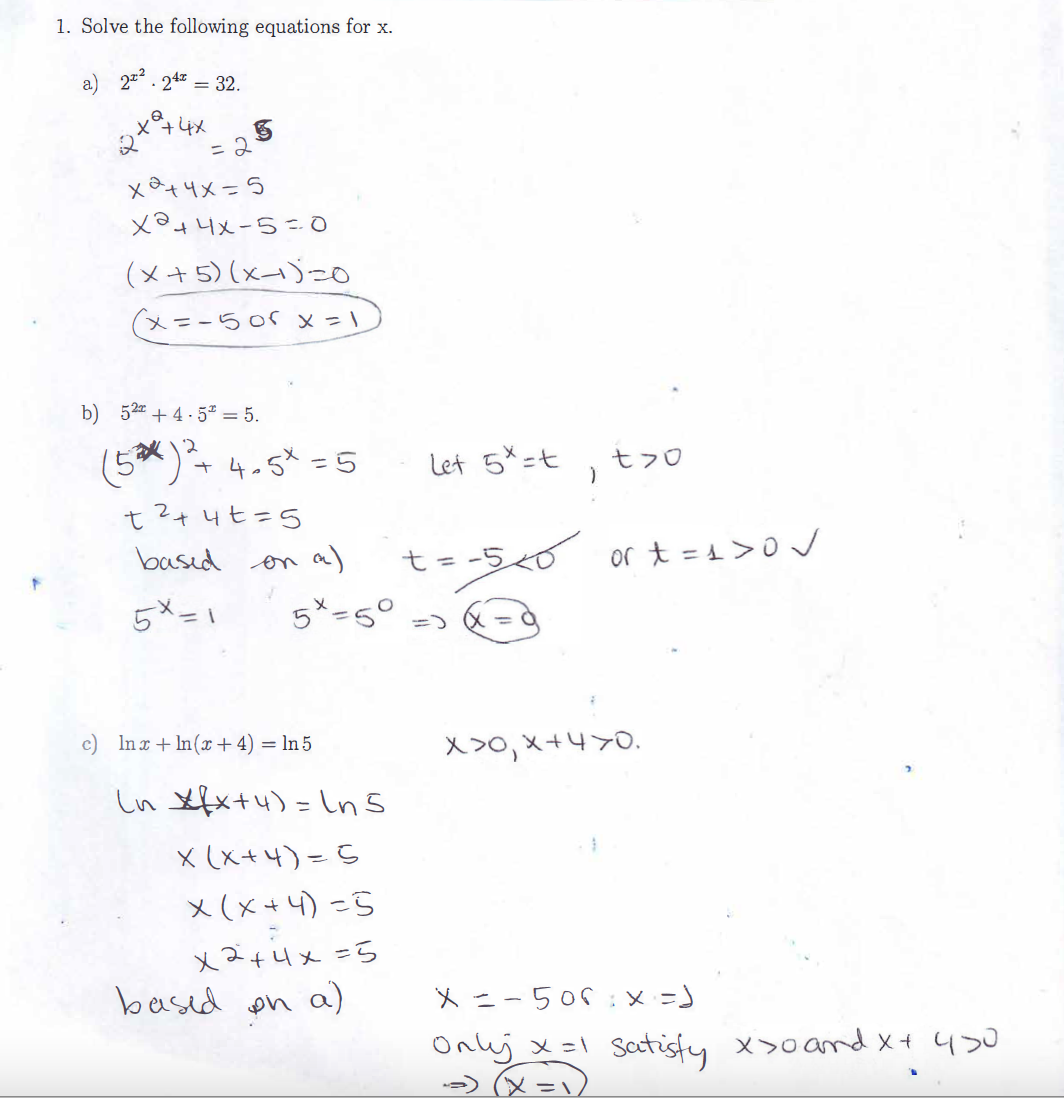 1. Solve the following equations for x.
a) 2^{x^2} · 2^{4x} = 32.
2^{x^2+4x} = 2^5
x^2+4x=5
x^2+4x-5=0
(x+5)(x-1)=0
x=-5 or x=1
b) 5^{2x} + 4 · 5^x = 5.
(5^x)^2 + 4·5^x = 5 Let 5^x=t, t>0
t^2+4t=5
based on a) t=-5<0 or t=1>0 ✓
5^x=1 5^x=5^0 => x=0
c) ln x + ln(x + 4) = ln 5 x>0, x+4>0.
ln x(x+4) = ln5
x(x+4)=5
x(x+4)=5
x^2+4x=5
based on a) x=-5 or x=1
Only x=1 satisfy x>0 and x+4>0
=> x=1